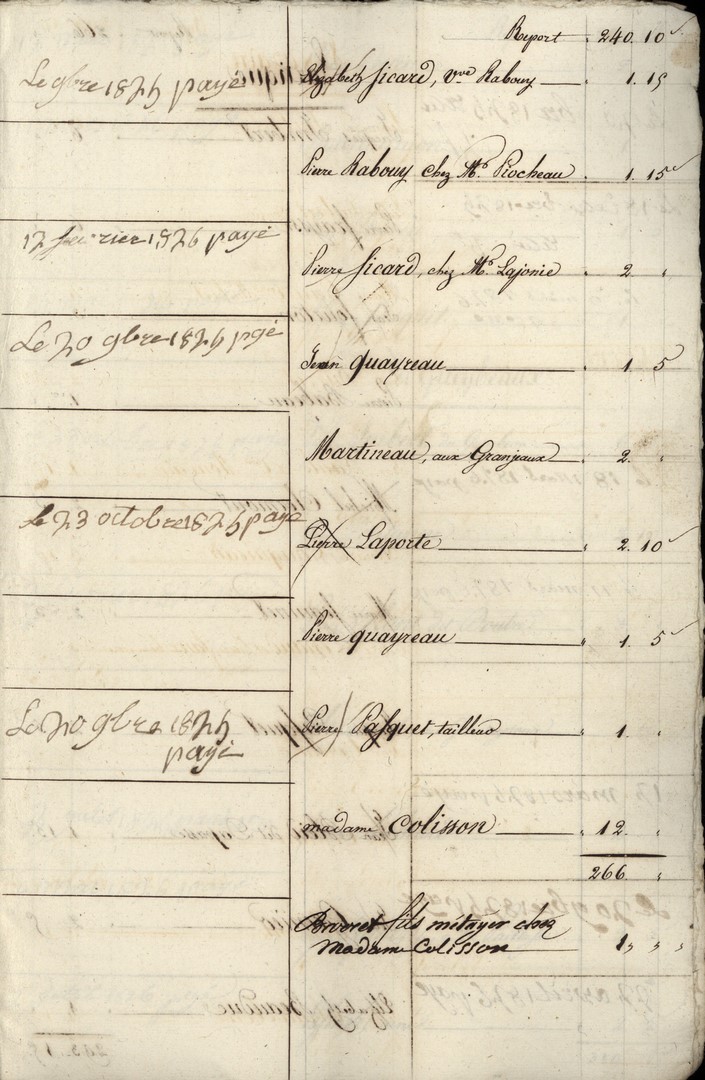 Report 240. 10
Le 9bre 1825 payé Elizabeth Sicard, Vve Rabouy 1. 15
Pierre Rabouy chez Mr. Rocheau 1. 15
12 février 1826 payé
Pierre Sicard, chez Mr. Lajonie 2. "
Le 20 9bre 1825 pyé
Jean Quayreau 1 5
Martineau, aux Granjeaux 2. "
Le 23 octobre 1825 payé
Pierre Laporte " 2. 10
Pierre Quayreau " 1. 5
Le 20 9bre 1825 Pierre Pasquet, tailleur " 1. "
payé
madame Colisson " 12. "
266 "
fils métayer chez
Madame Colisson 1 " "